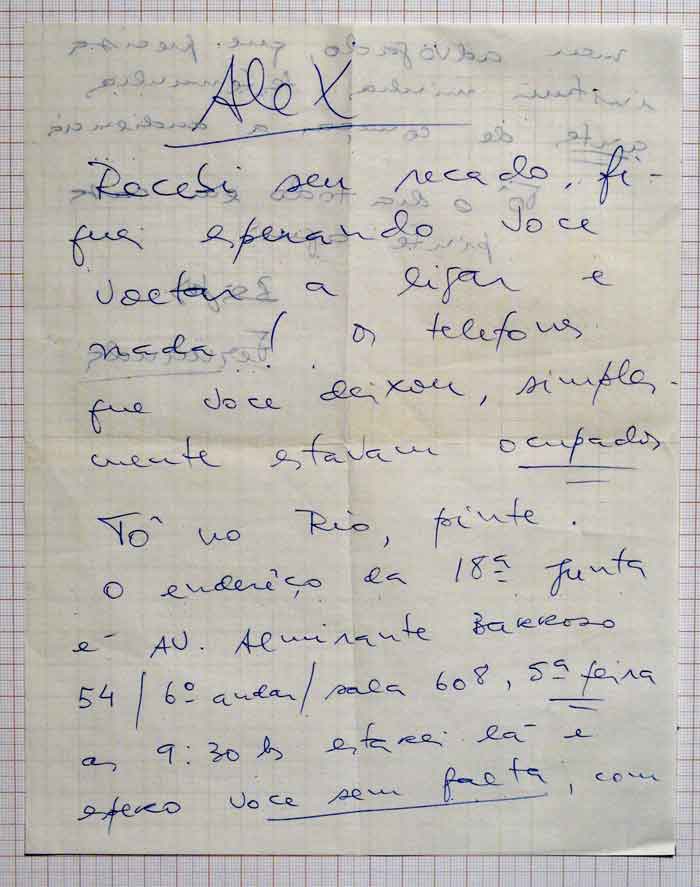 Alex
Recebi seu recado, fi-
quei esperando voce
voltar a ligar e
nada! os telefones
que voce deixou, simples-
mente estavam ocupados
Tô no Rio, pinte.
O enderêço da 18ª Junta
é AV. Almirante BARROSO
54/6º andar/sala 608, 5ª feira
as 9:30 hs estarei lá e
espero voce sem falta, com